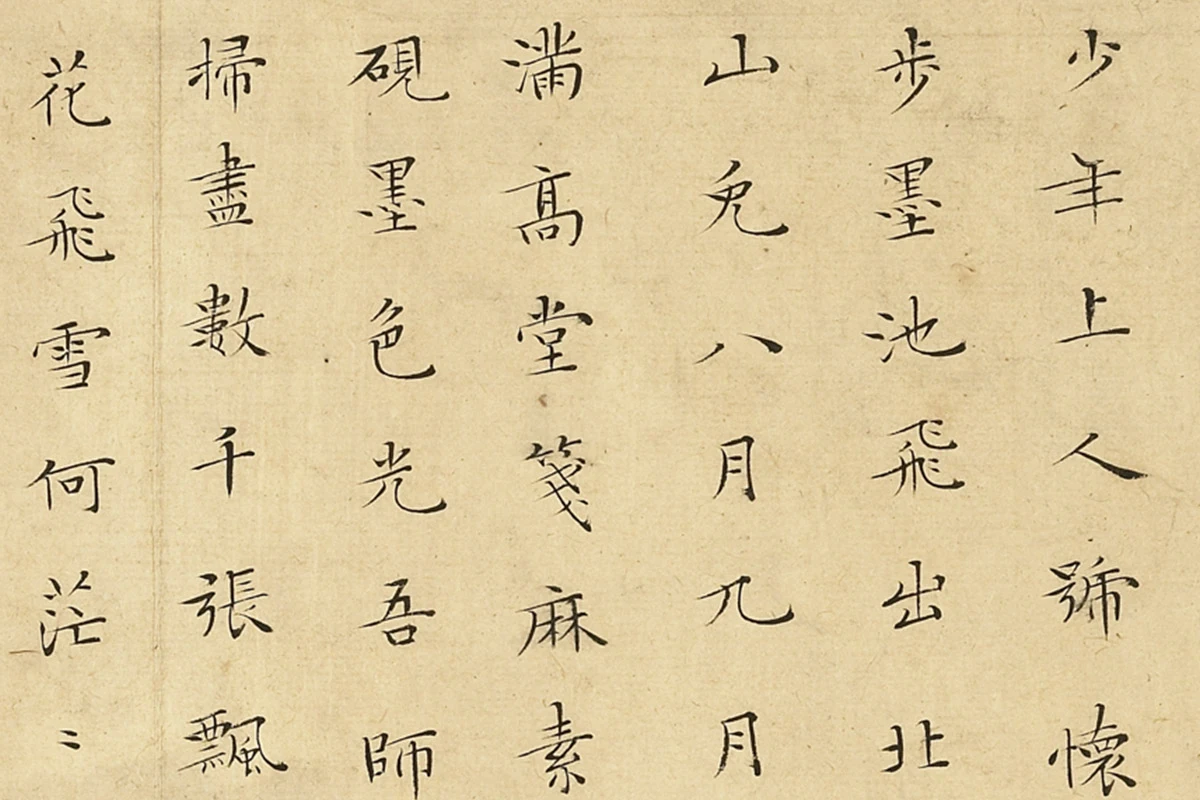 少年上人號懷
步墨池飛出北
山兔八月九月
滿高堂箋麻素
硯墨色光吾師
掃盡數千張飄
花飛雪何茫〻